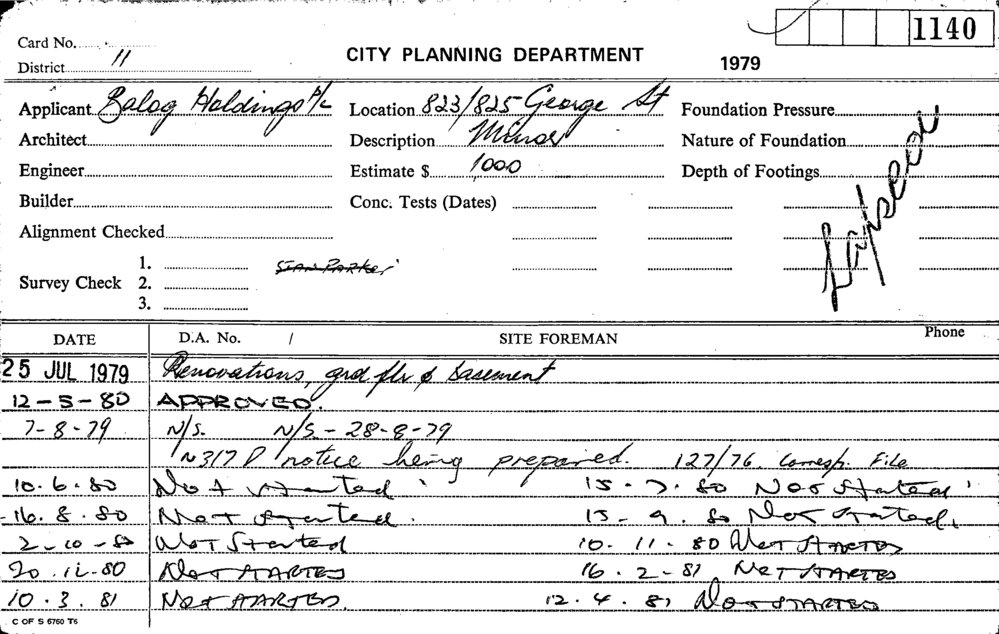 1140
Card No.
CITY PLANNING DEPARTMENT
1979
District 11
Applicant Balog Holdings P/L Location 823/825 George St Foundation Pressure
Architect Description Minor Nature of Foundation
Engineer Estimate $ 1000 Depth of Footings
Builder Conc. Tests (Dates)
Lapsed
Alignment Checked
Survey Check 1. STAN PARKER
2.
3.
DATE D.A. No. / SITE FOREMAN Phone
25 JUL 1979 Renovations, grd flr & basement
12-5-80 APPROVED.
7-8-79 N/S. N/S - 28-8-79
N317D notice being prepared. 127/76. Corresp. File
10.6.80 Not started 15.7.80 Not started
16.8.80 Not started. 15-9.80 Not started.
2-10-80 Not Started 10.11-80 Not STARTED
20.12-80 Not STARTED 16-2-81 Not STARTED
10.3.81 Not STARTED. 12.4.81 Not STARTED
C OF S 6760 T6